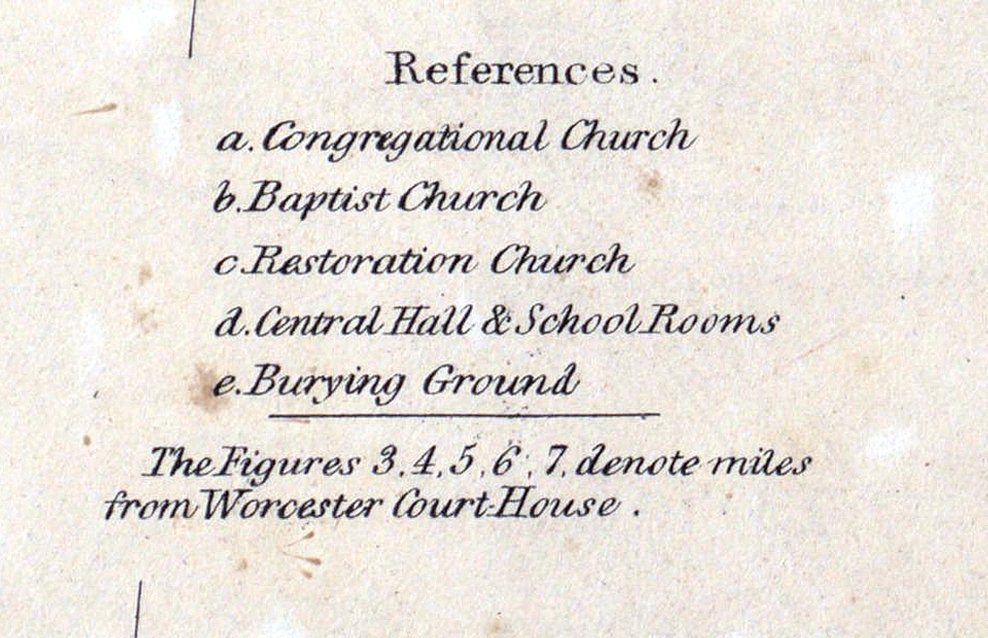 References.
a. Congregational Church
b. Baptist Church
c. Restoration Church
d. Central Hall & School Rooms
e. Burying Ground
The Figures 3, 4, 5, 6, 7, denote miles
from Worcester Court-House.